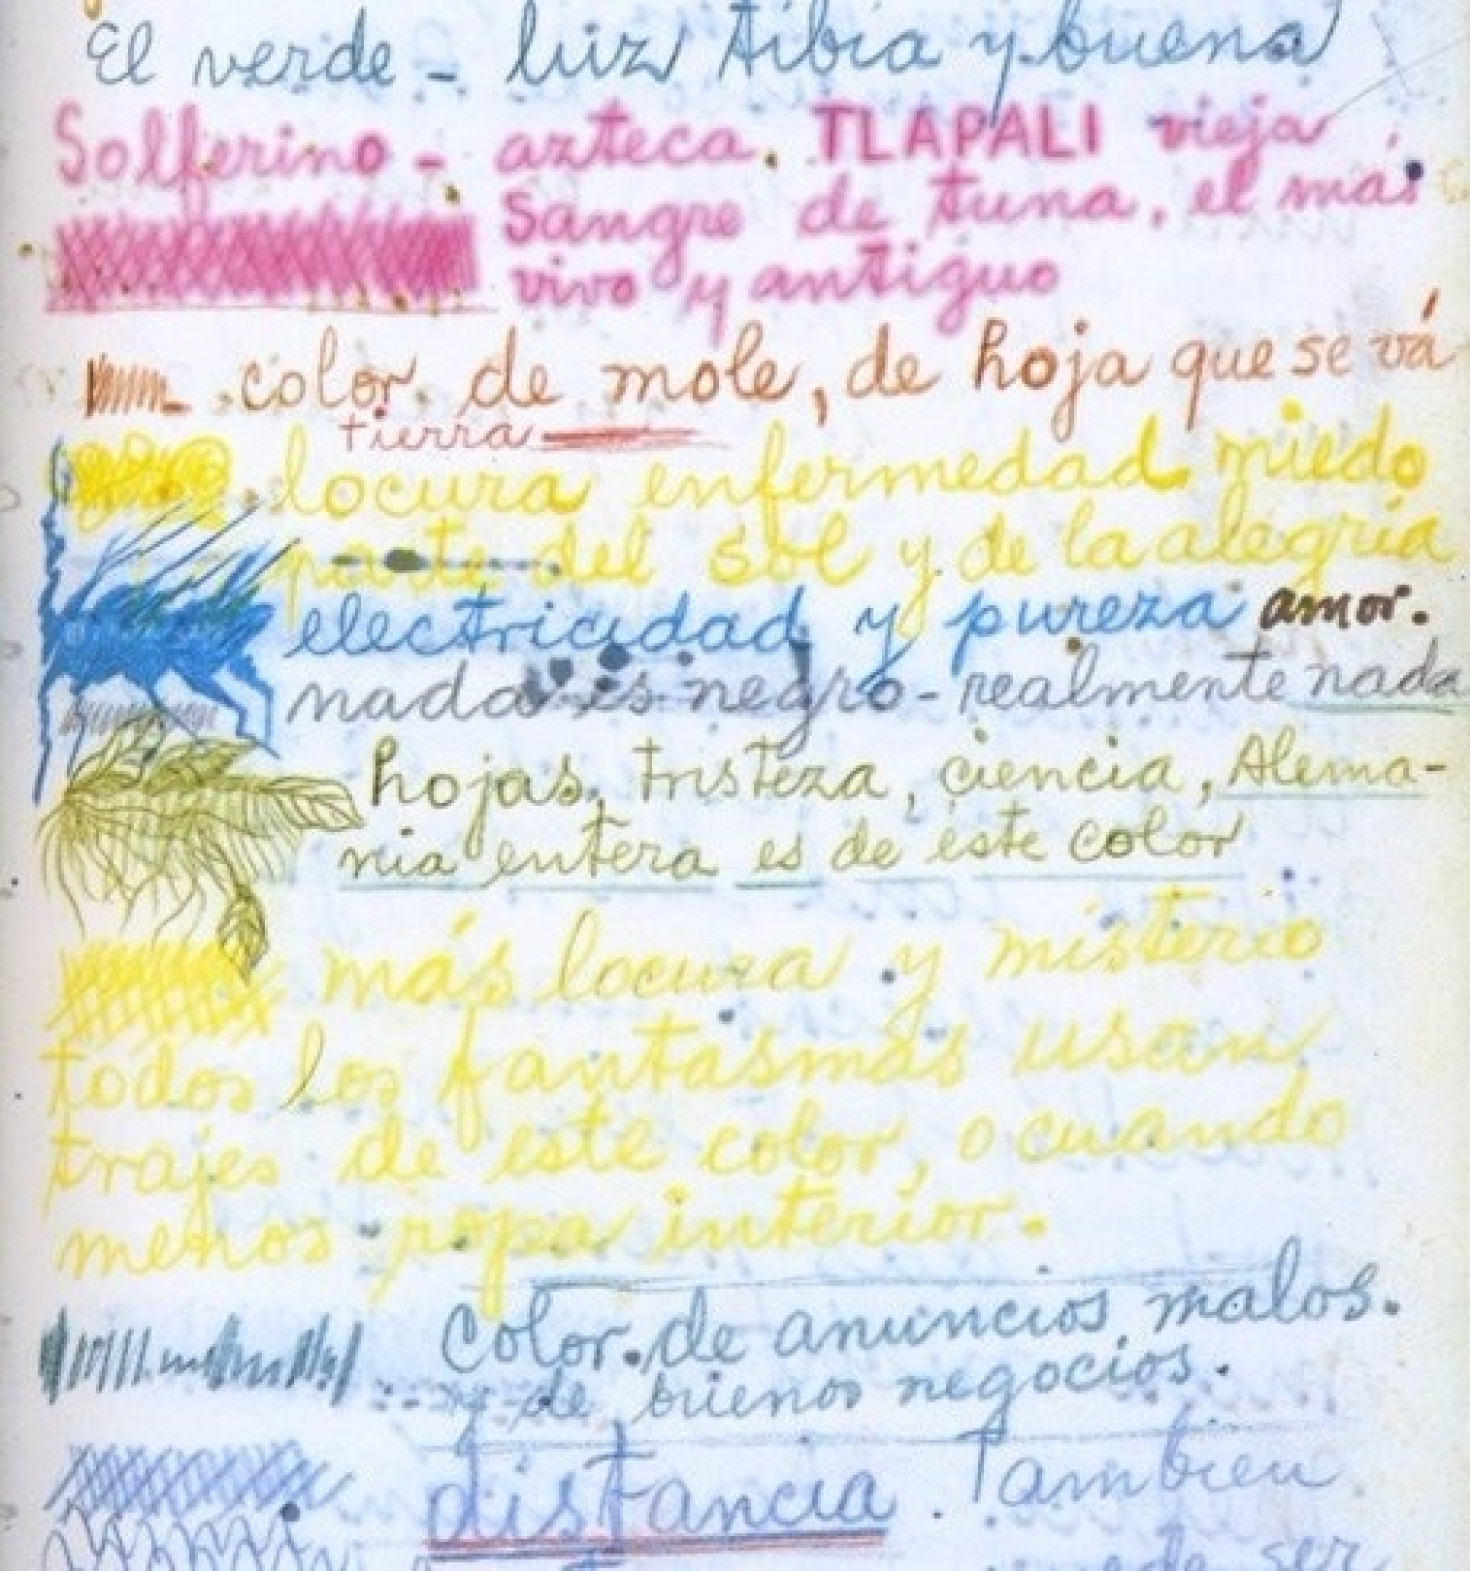 El verde - luz tibia y buena
Solferino - azteca. TLAPALI vieja
Sangre de tuna, el más
vivo y antiguo
color de mole, de hoja que se vá
tierra
locura enfermedad miedo
parte del sol y de la alegría
electricidad y pureza amor.
nada es negro - realmente nada
hojas, tristeza, ciencia, Alema-
nia entera es de éste color
más locura y misterio
todos los fantasmas usan
trajes de este color, o cuando
menos ropa interior.
Color de anuncios malos.
y de buenos negocios.
distancia. Tambien
puede ser